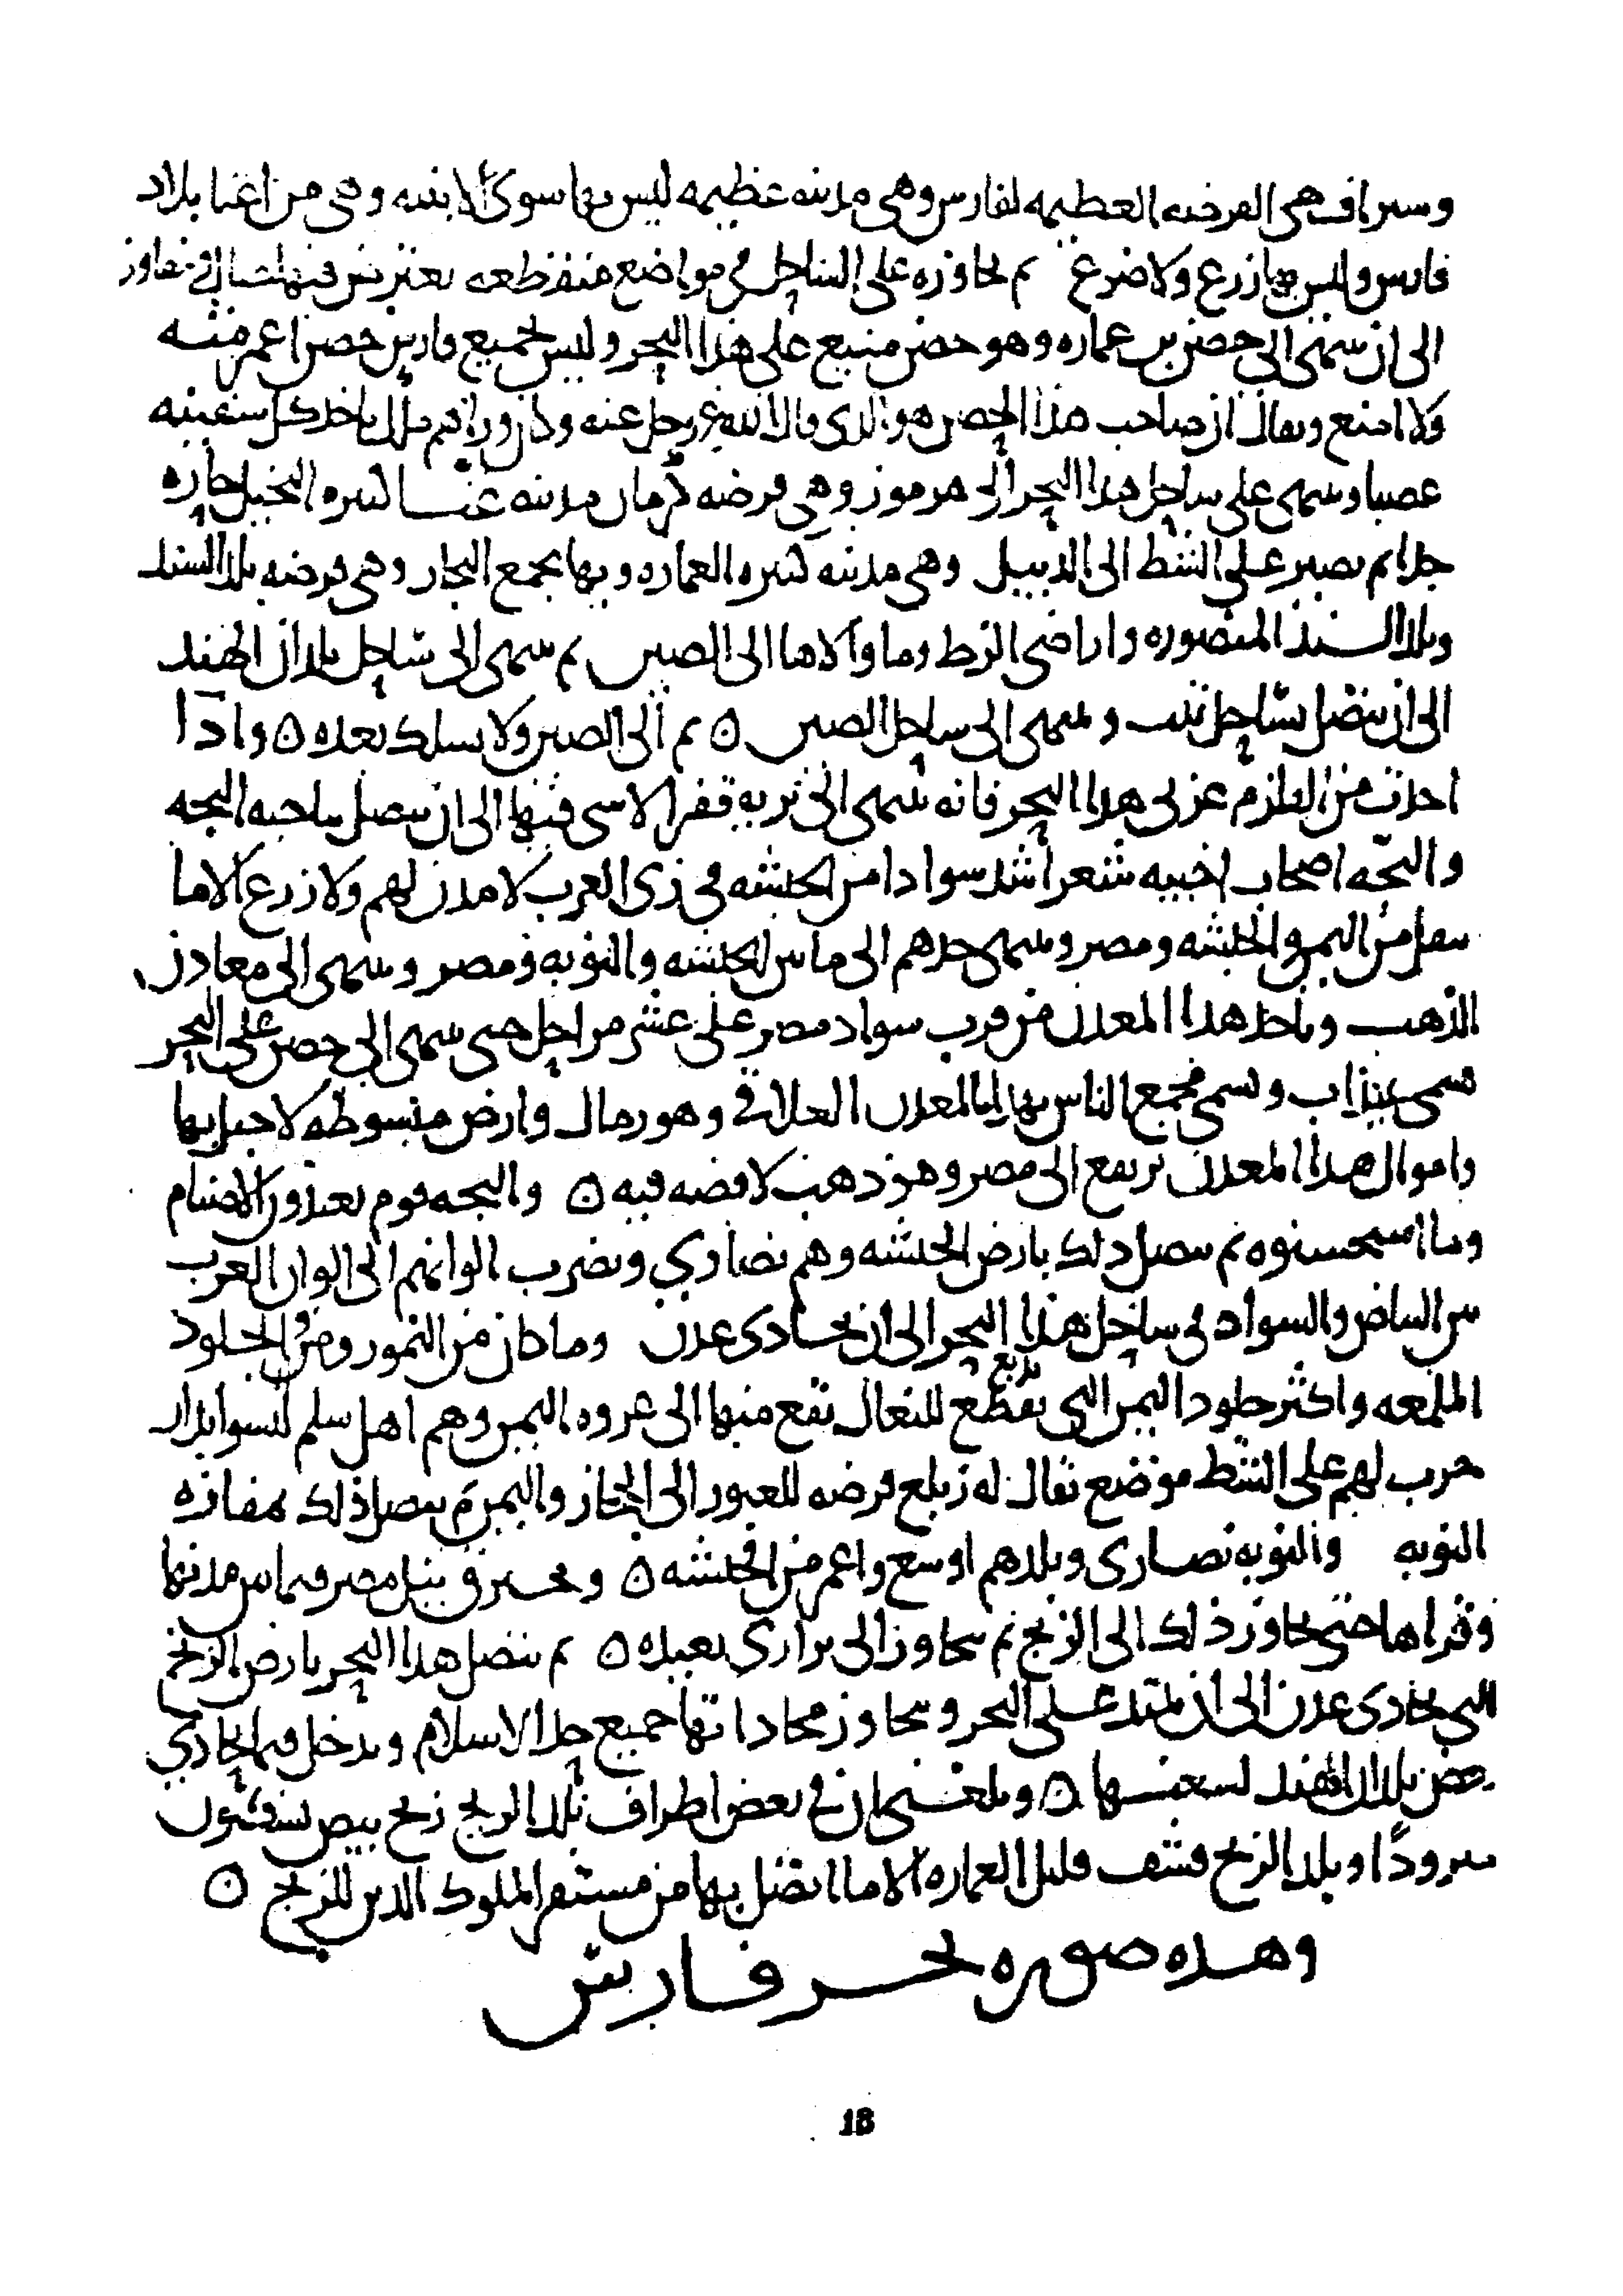 وسيراف هي الفرضه العظيمه لفارس وهي مدينه عظيمه ليس بها سوى الابنيه وهي من اغنا بلاد
فارس وليس بها زرع ولا ضرع ثم تجاوزه على الساحل في مواضع منقطعه تعترض فيها جبال ومفاوز
الى ان تنتهى الى حصن بن عماره وهو حصن منيع على هذا البحر وليس بجميع فارس حصن اعمر منه
ولا امنع ويقال ان صاحب هذا الحصن هو الذى قال الله عز وجل عنه وكان وراهم ملك ياخذ كل سفينه
غصبا وينتهى على ساحل هذا البحر الى هرموز وهي فرضه كرمان مدينه غنا كثيره النخيل حاره
جدا ثم يصير على الشط الى الدبيل وهي مدينه كثيره العماره وبها مجمع التجار وهي فرضه بلد السند
وبلد السند المنصوره واراضى الزط وما والاها الى الصين ثم ينتهى الى ساحل بلدان الهند
الى ان يتصل بساحل تبت وينتهى الى ساحل الصين ٥ ثم الى الصين ولا يسلك بعده ٥ واذا
اخذت من القلزم غربى هذا البحر فانه ينتهى الى بريه قفر لا شى فيها الى ان يتصل بناحيه البجه
والبجه اصحاب اخبيه شعر اشد سوادا من الحبشه في زى العرب لا مدن لهم ولا زرع الا ما
ينقل من اليمن والحبشه ومصر وينتهى حدهم الى ما بين الحبشه والنوبه ومصر وينتهى الى معادن
الذهب وياخذ هذا المعدن من قرب سواد مصر على عشر مراحل حتى ينتهى الى حصن على البحر
يسمى عيذاب ويسمى مجمع الناس بهذا المعدن العلاقى وهو رمال وارض مبسوطه لا جبل بها
واموال هذا المعدن ترتفع الى مصر وهو ذهب لا فضه فيه ٥ والبجه قوم يعبدون الاصنام
وما استحسنوه ثم يتصل ذلك بارض الحبشه وهم نصارى وتضرب الوانهم الى الوان العرب
بين البياض والسواد في ساحل هذا البحر الى ان يحاذى عدن وما كان من النمور ومن الجلود
الملمعه واكثر جلود اليمن التى تقطع تدبغ للنعال تقع منها الى عدوه اليمن وهم اهل سلم ليسوا بدار
حرب لهم على الشط موضع يقال له زيلع فرضه للعبور الى الحجاز واليمن ثم يتصل ذلك بمفازه
النوبه والنوبه نصارى وبلدهم اوسع واعمر من الحبشه ٥ ويخترق نيل مصر فيما بين مدنها
وقراها حتى يجاوز ذلك الى الزنج ثم يتجاوز الى برارى بعيده ٥ ثم يتصل هذا البحر بارض الزنج
التى تحاذى عدن الى ان يمتد على البحر ويتجاوز محاذاتها جميع حد الاسلام ويدخل فيما يحاذي
بعض بلدان الهند لسعتها ٥ وبلغنى ان في بعض اطراف بلد الزنج زنج بيض
صرودا وبلد الزنج قشف قليل العماره الا ما اتصل بها من مستقر الملوك الذين للزنج ٥
وهذه صوره بحر فارس
18